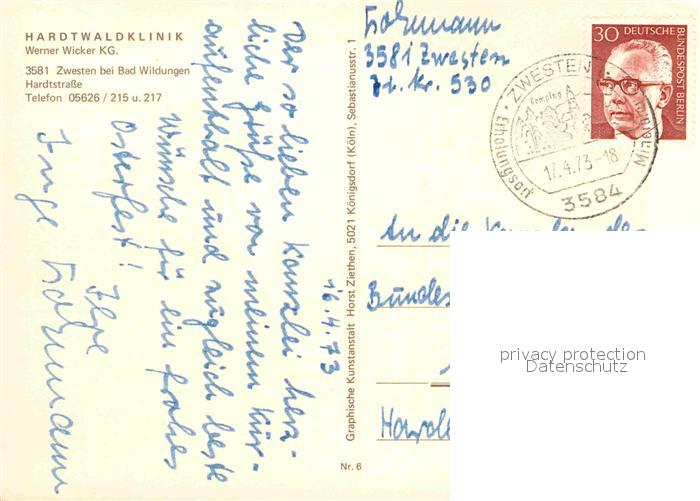 HARDTWALDKLINIK
Werner Wicker KG.
3581 Zwesten bei Bad Wildungen
Hardtstraße
Telefon 05626 / 215 u. 217
Der so lieben Kanzlei herz-
liche Grüße von meinem Kur-
aufenthalt und zugleich beste
Wünsche für ein frohes
Osterfest!
Ihre
Inge
16.4.73
Graphische Kunstanstalt Horst Ziethen, 5021 Königsdorf (Köln), Sebastianusstr. 1
Nr. 6
3581 Zwesten
Zi. Nr. 530
30 DEUTSCHE
BUNDESPOST BERLIN
ZWESTEN
Camping
17.4.73-18
3584
An die Kanzlei de
Bundes
privacy protection
Datenschutz